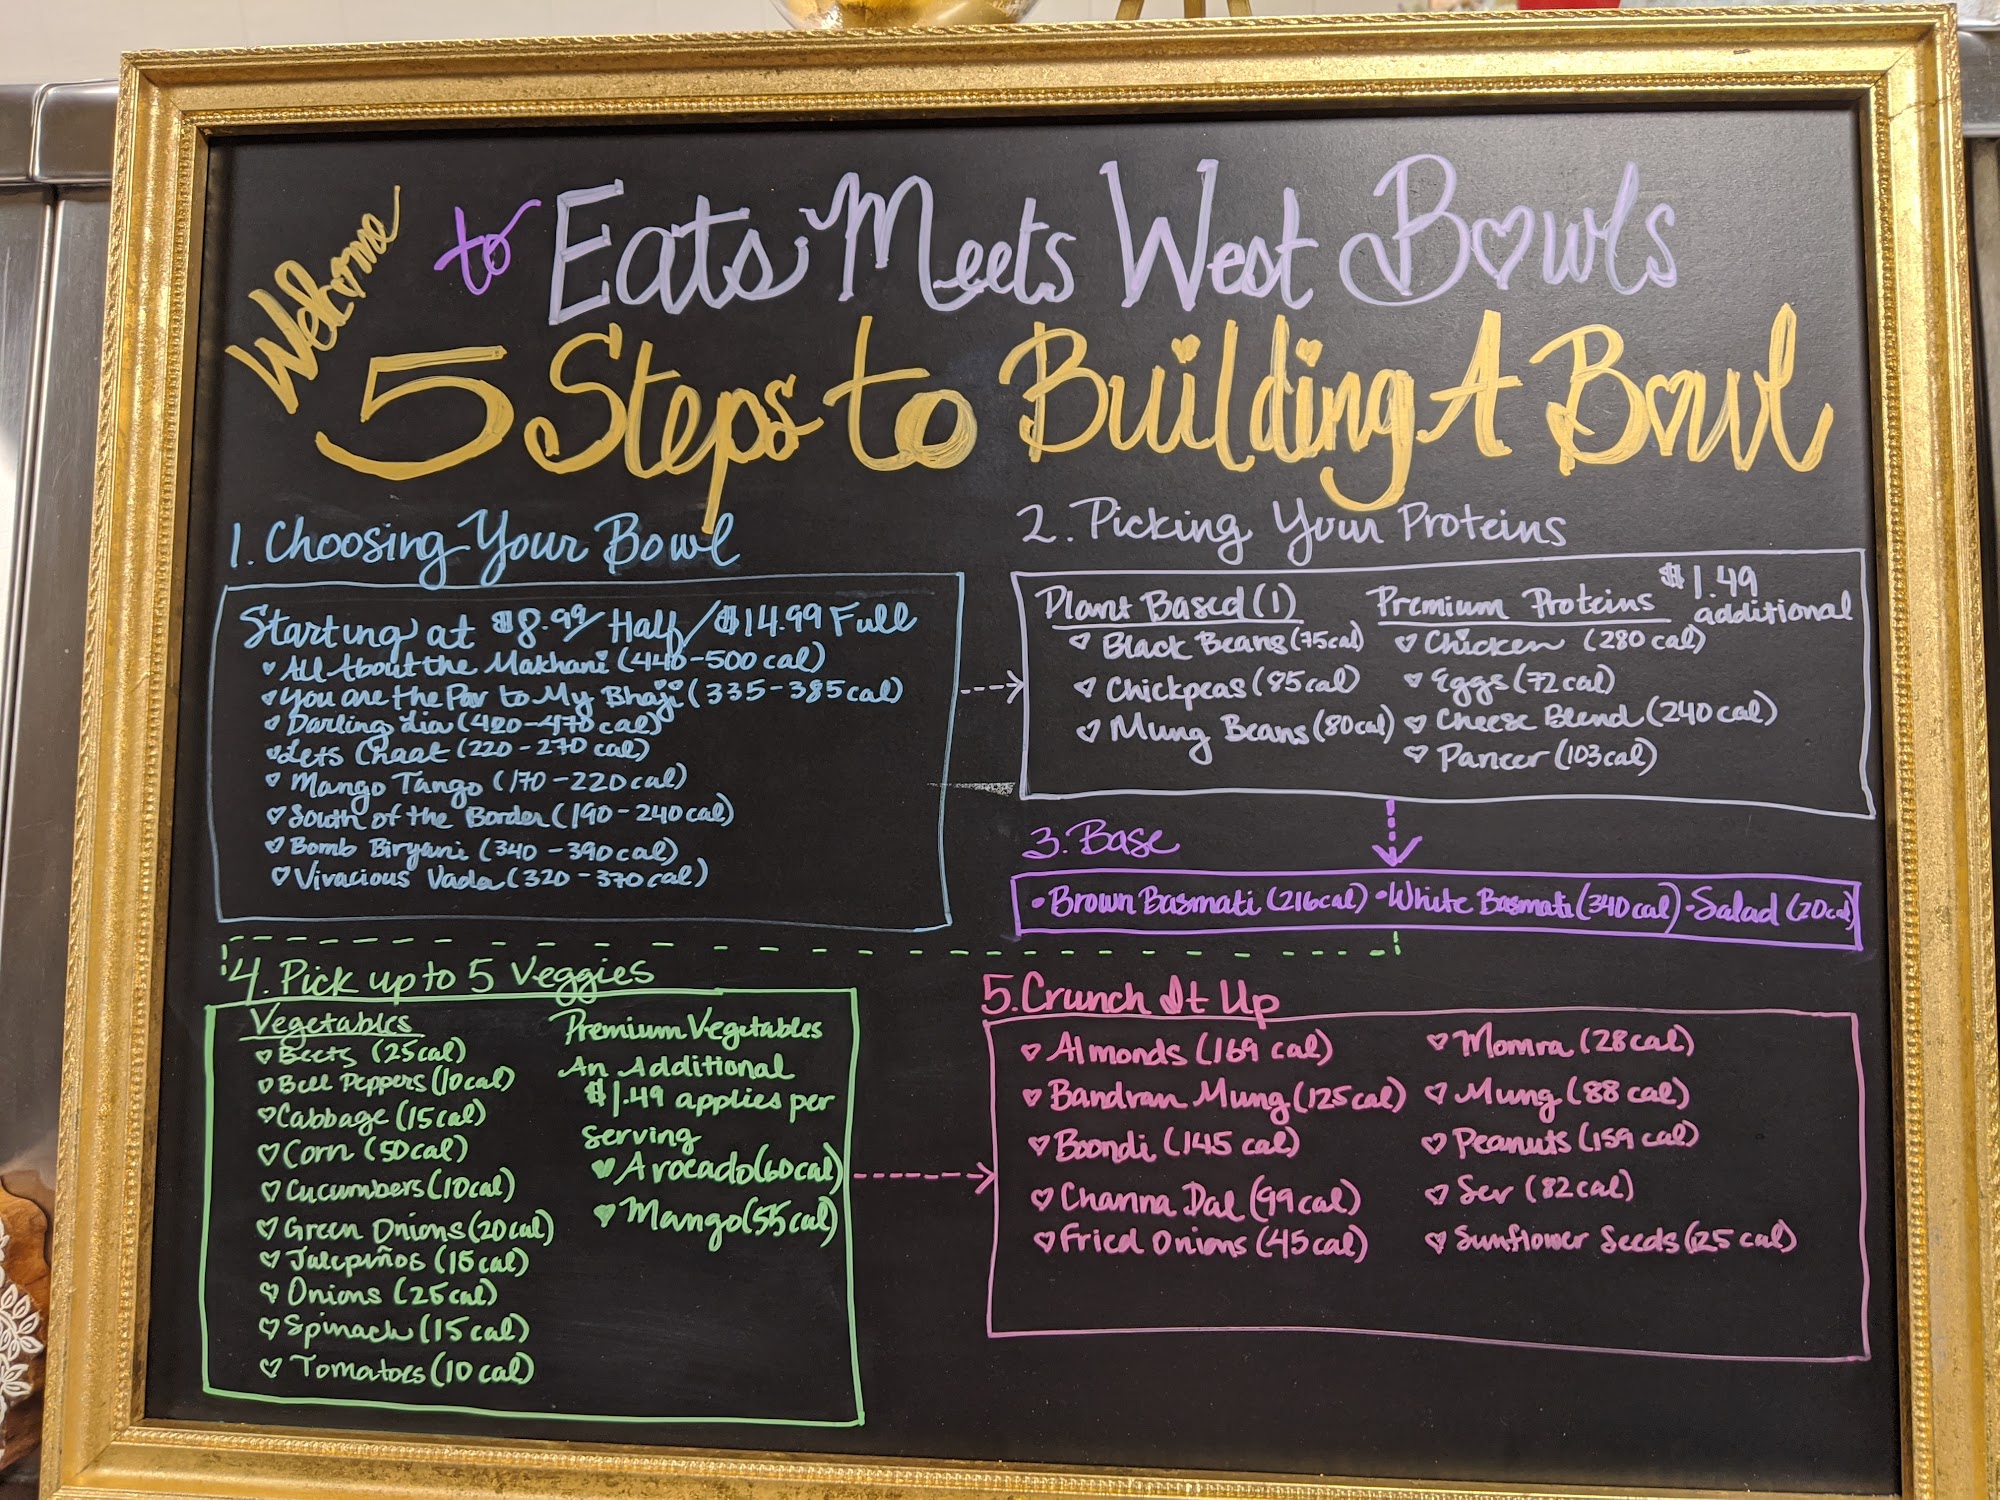 Welcome to Eats Meets West Bowls
5 Steps to Building A Bowl
1. Choosing Your Bowl
Starting at $8.99/Half/$14.99 Full
All About the Makhani (440-500 cal)
You are the Pav to My Bhaji (335-385 cal)
Darling Lia (420-470 cal)
Lets Chaat (220-270 cal)
Mango Tango (170-220 cal)
South of the Border (190-240 cal)
Bomb Biryani (340-390 cal)
Vivacious Vada (320-370 cal)
2. Picking Your Proteins
Plant Based (1)
Black Beans (75 cal)
Chickpeas (85 cal)
Mung Beans (80 cal)
Premium Proteins $1.49 additional
Chicken (280 cal)
Eggs (72 cal)
Cheese Blend (240 cal)
Paneer (103 cal)
3. Base
• Brown Basmati (216 cal) • White Basmati (340 cal) • Salad (20 cal)
4. Pick up to 5 Veggies
Vegetables
Beets (25 cal)
Bell Peppers (10 cal)
Cabbage (15 cal)
Corn (50 cal)
Cucumbers (10 cal)
Green Onions (20 cal)
Jalepiños (15 cal)
Onions (25 cal)
Spinach (15 cal)
Tomatoes (10 cal)
Premium Vegetables
An Additional
$1.49 applies per
serving
Avocado (60 cal)
Mango (55 cal)
5. Crunch It Up
Almonds (169 cal)
Bandvan Mung (125 cal)
Boondi (145 cal)
Channa Dal (99 cal)
Fried Onions (45 cal)
Momra (28 cal)
Mung (88 cal)
Peanuts (159 cal)
Sev (82 cal)
Sunflower Seeds (25 cal)